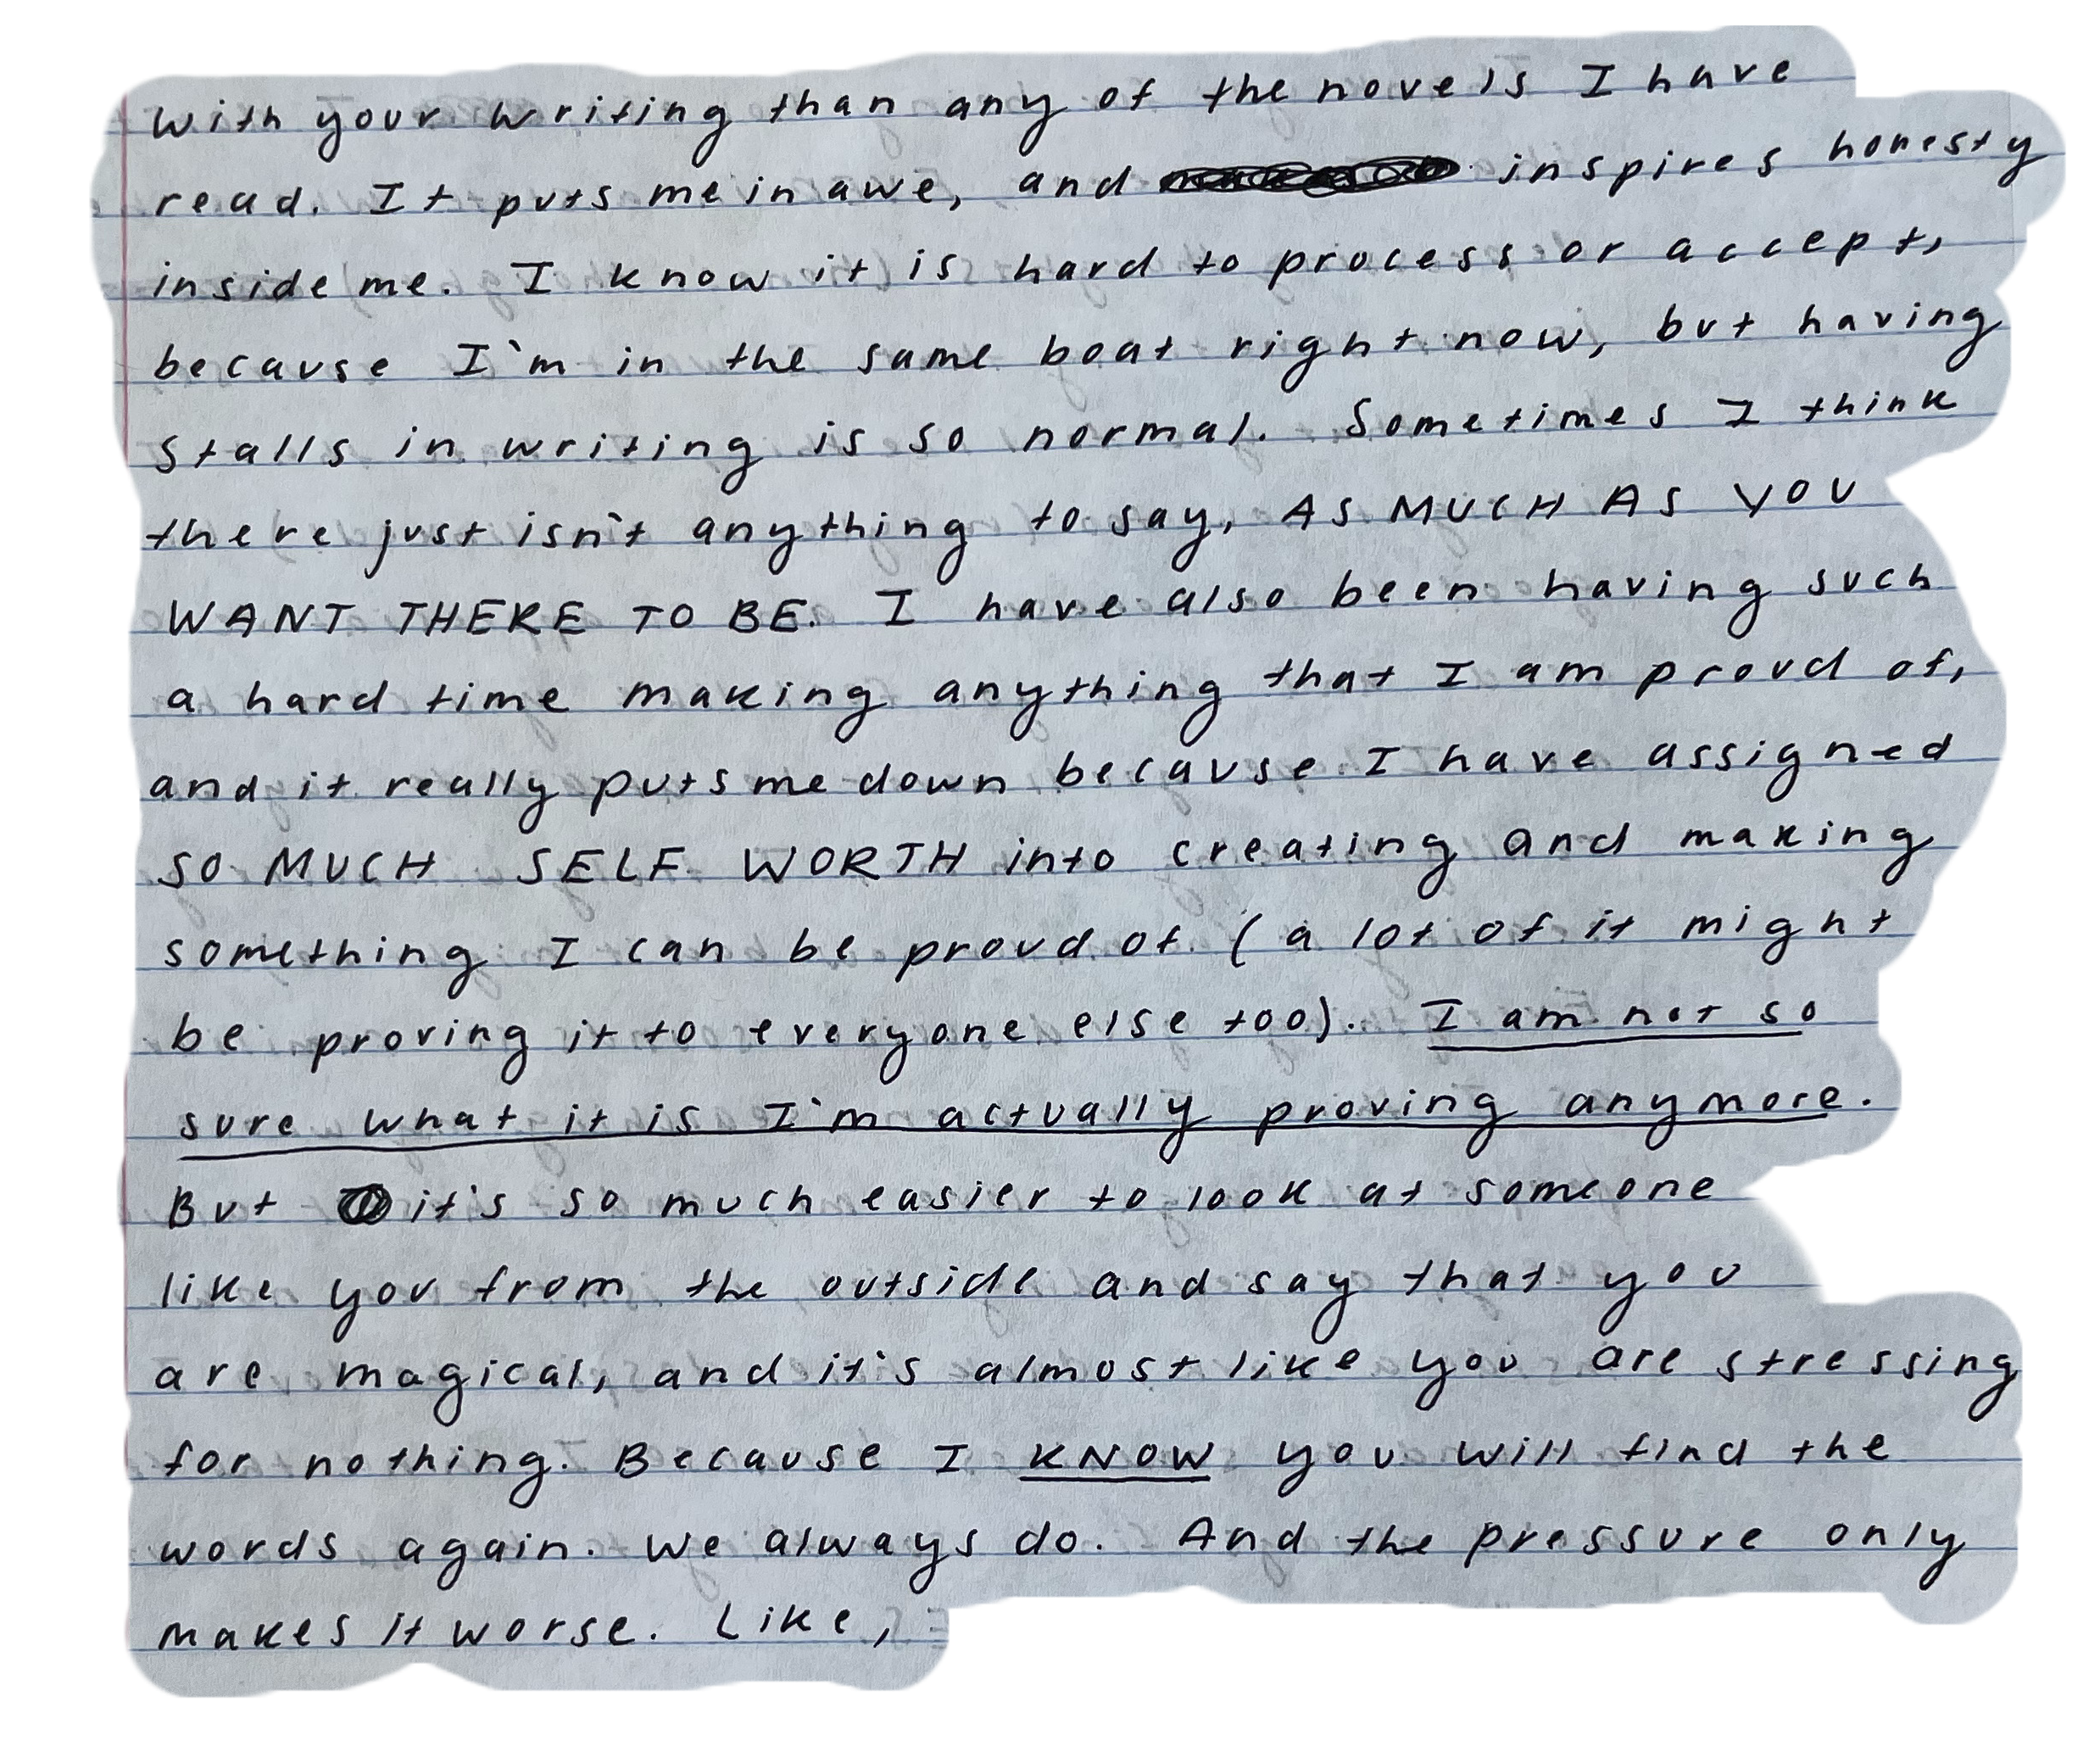 with your writing than any of the novels I have
read. It puts me in awe, and inspires honesty
inside me. I know it is hard to process or accept,
because I'm in the same boat right now, but having
stalls in writing is so normal. Sometimes I think
there just isn't anything to say, AS MUCH AS YOU
WANT THERE TO BE. I have also been having such
a hard time making anything that I am proud of,
and it really puts me down because I have assigned
SO MUCH SELF WORTH into creating and making
something I can be proud of (a lot of it might
be proving it to everyone else too). I am not so
sure what it is I'm actually proving anymore.
But it's so much easier to look at someone
like you from the outside and say that you
are magical, and it's almost like you are stressing
for nothing. Because I KNOW you will find the
words again. We always do. And the pressure only
makes it worse. Like,